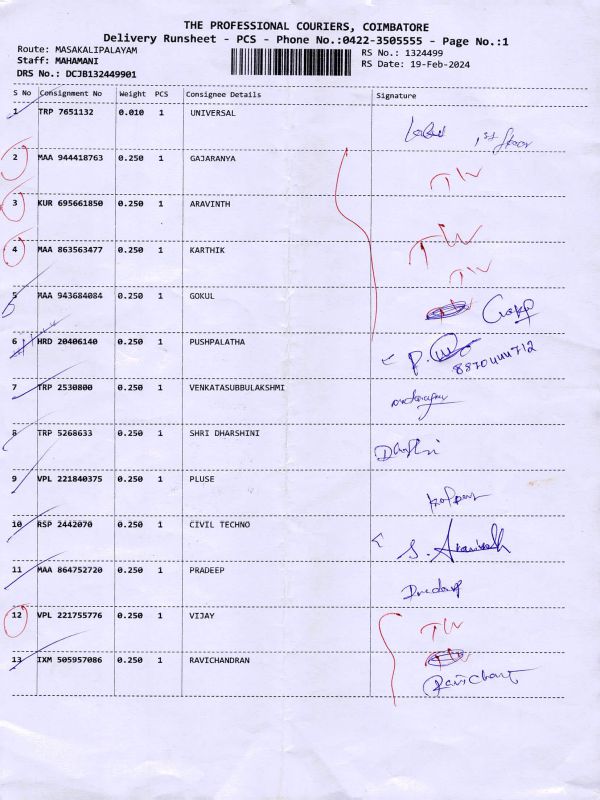 THE PROFESSIONAL COURIERS, COIMBATORE
Delivery Runsheet - PCS - Phone No.:0422-3505555 - Page No.:1
Route: MASAKALIPALAYAM
Staff: MAHAMANI
DRS No.: DCJB132449901
RS No.: 1324499
RS Date: 19-Feb-2024
S No Consignment No Weight PCS Consignee Details Signature
1 TRP 7651132 0.010 1 UNIVERSAL
1st floor
2 MAA 944418763 0.250 1 GAJARANYA TW
3 KUR 695661850 0.250 1 ARAVINTH TW
4 MAA 863563477 0.250 1 KARTHIK TW
5 MAA 943684084 0.250 1 GOKUL
6 HRD 20406140 0.250 1 PUSHPALATHA P.
7 TRP 2530800 0.250 1 VENKATASUBBULAKSHMI
8 TRP 5268633 0.250 1 SHRI DHARSHINI
9 VPL 221840375 0.250 1 PLUSE
10 RSP 2442070 0.250 1 CIVIL TECHNO S.
11 MAA 864752720 0.250 1 PRADEEP
12 VPL 221755776 0.250 1 VIJAY TW
13 IXM 505957086 0.250 1 RAVICHANDRAN